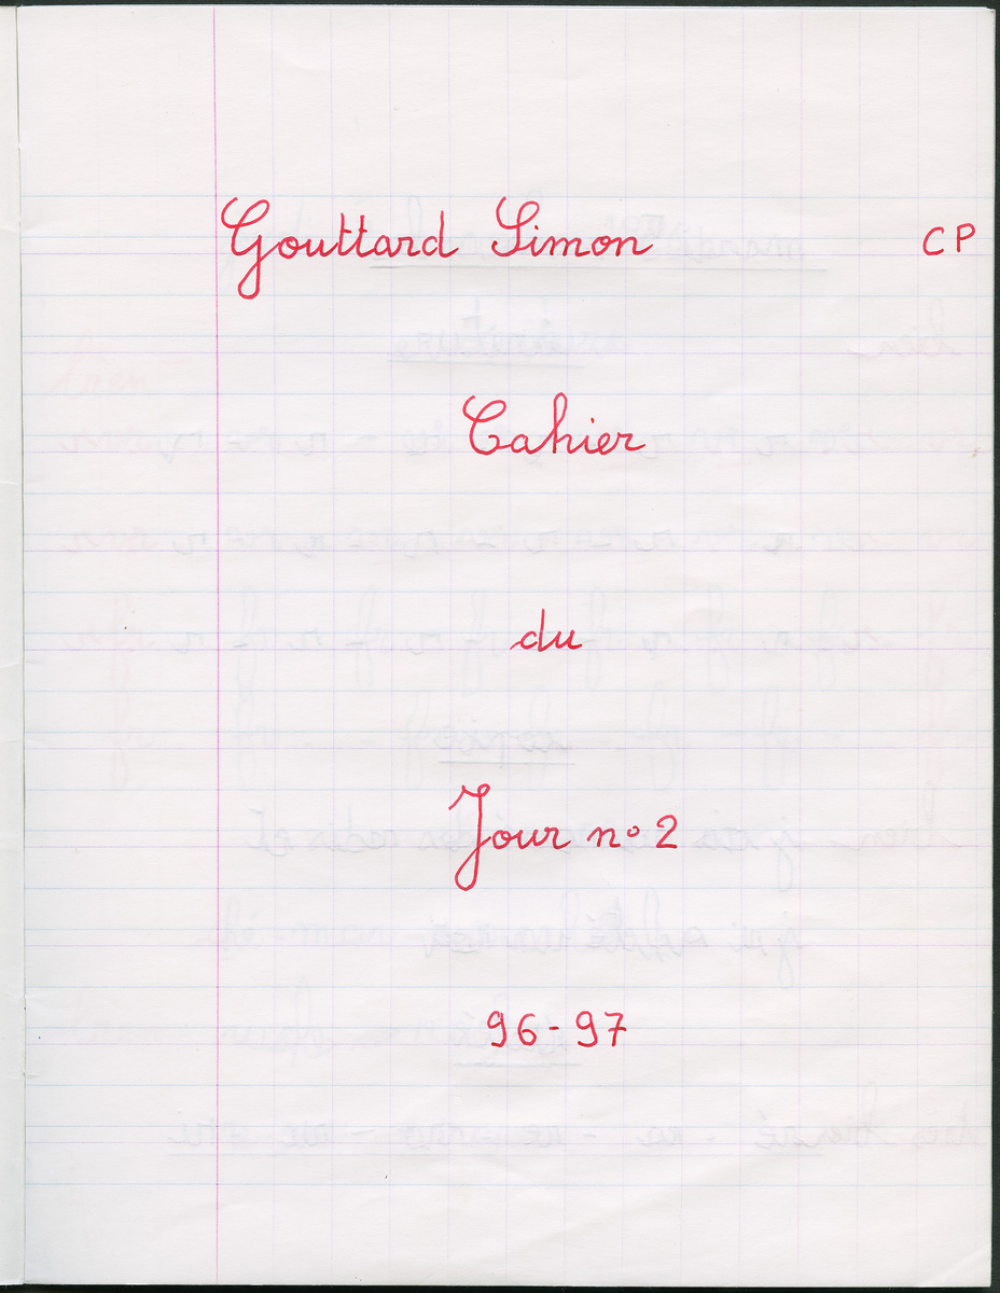 Gouttard Simon CP
Cahier
du
Jour n° 2
96-97